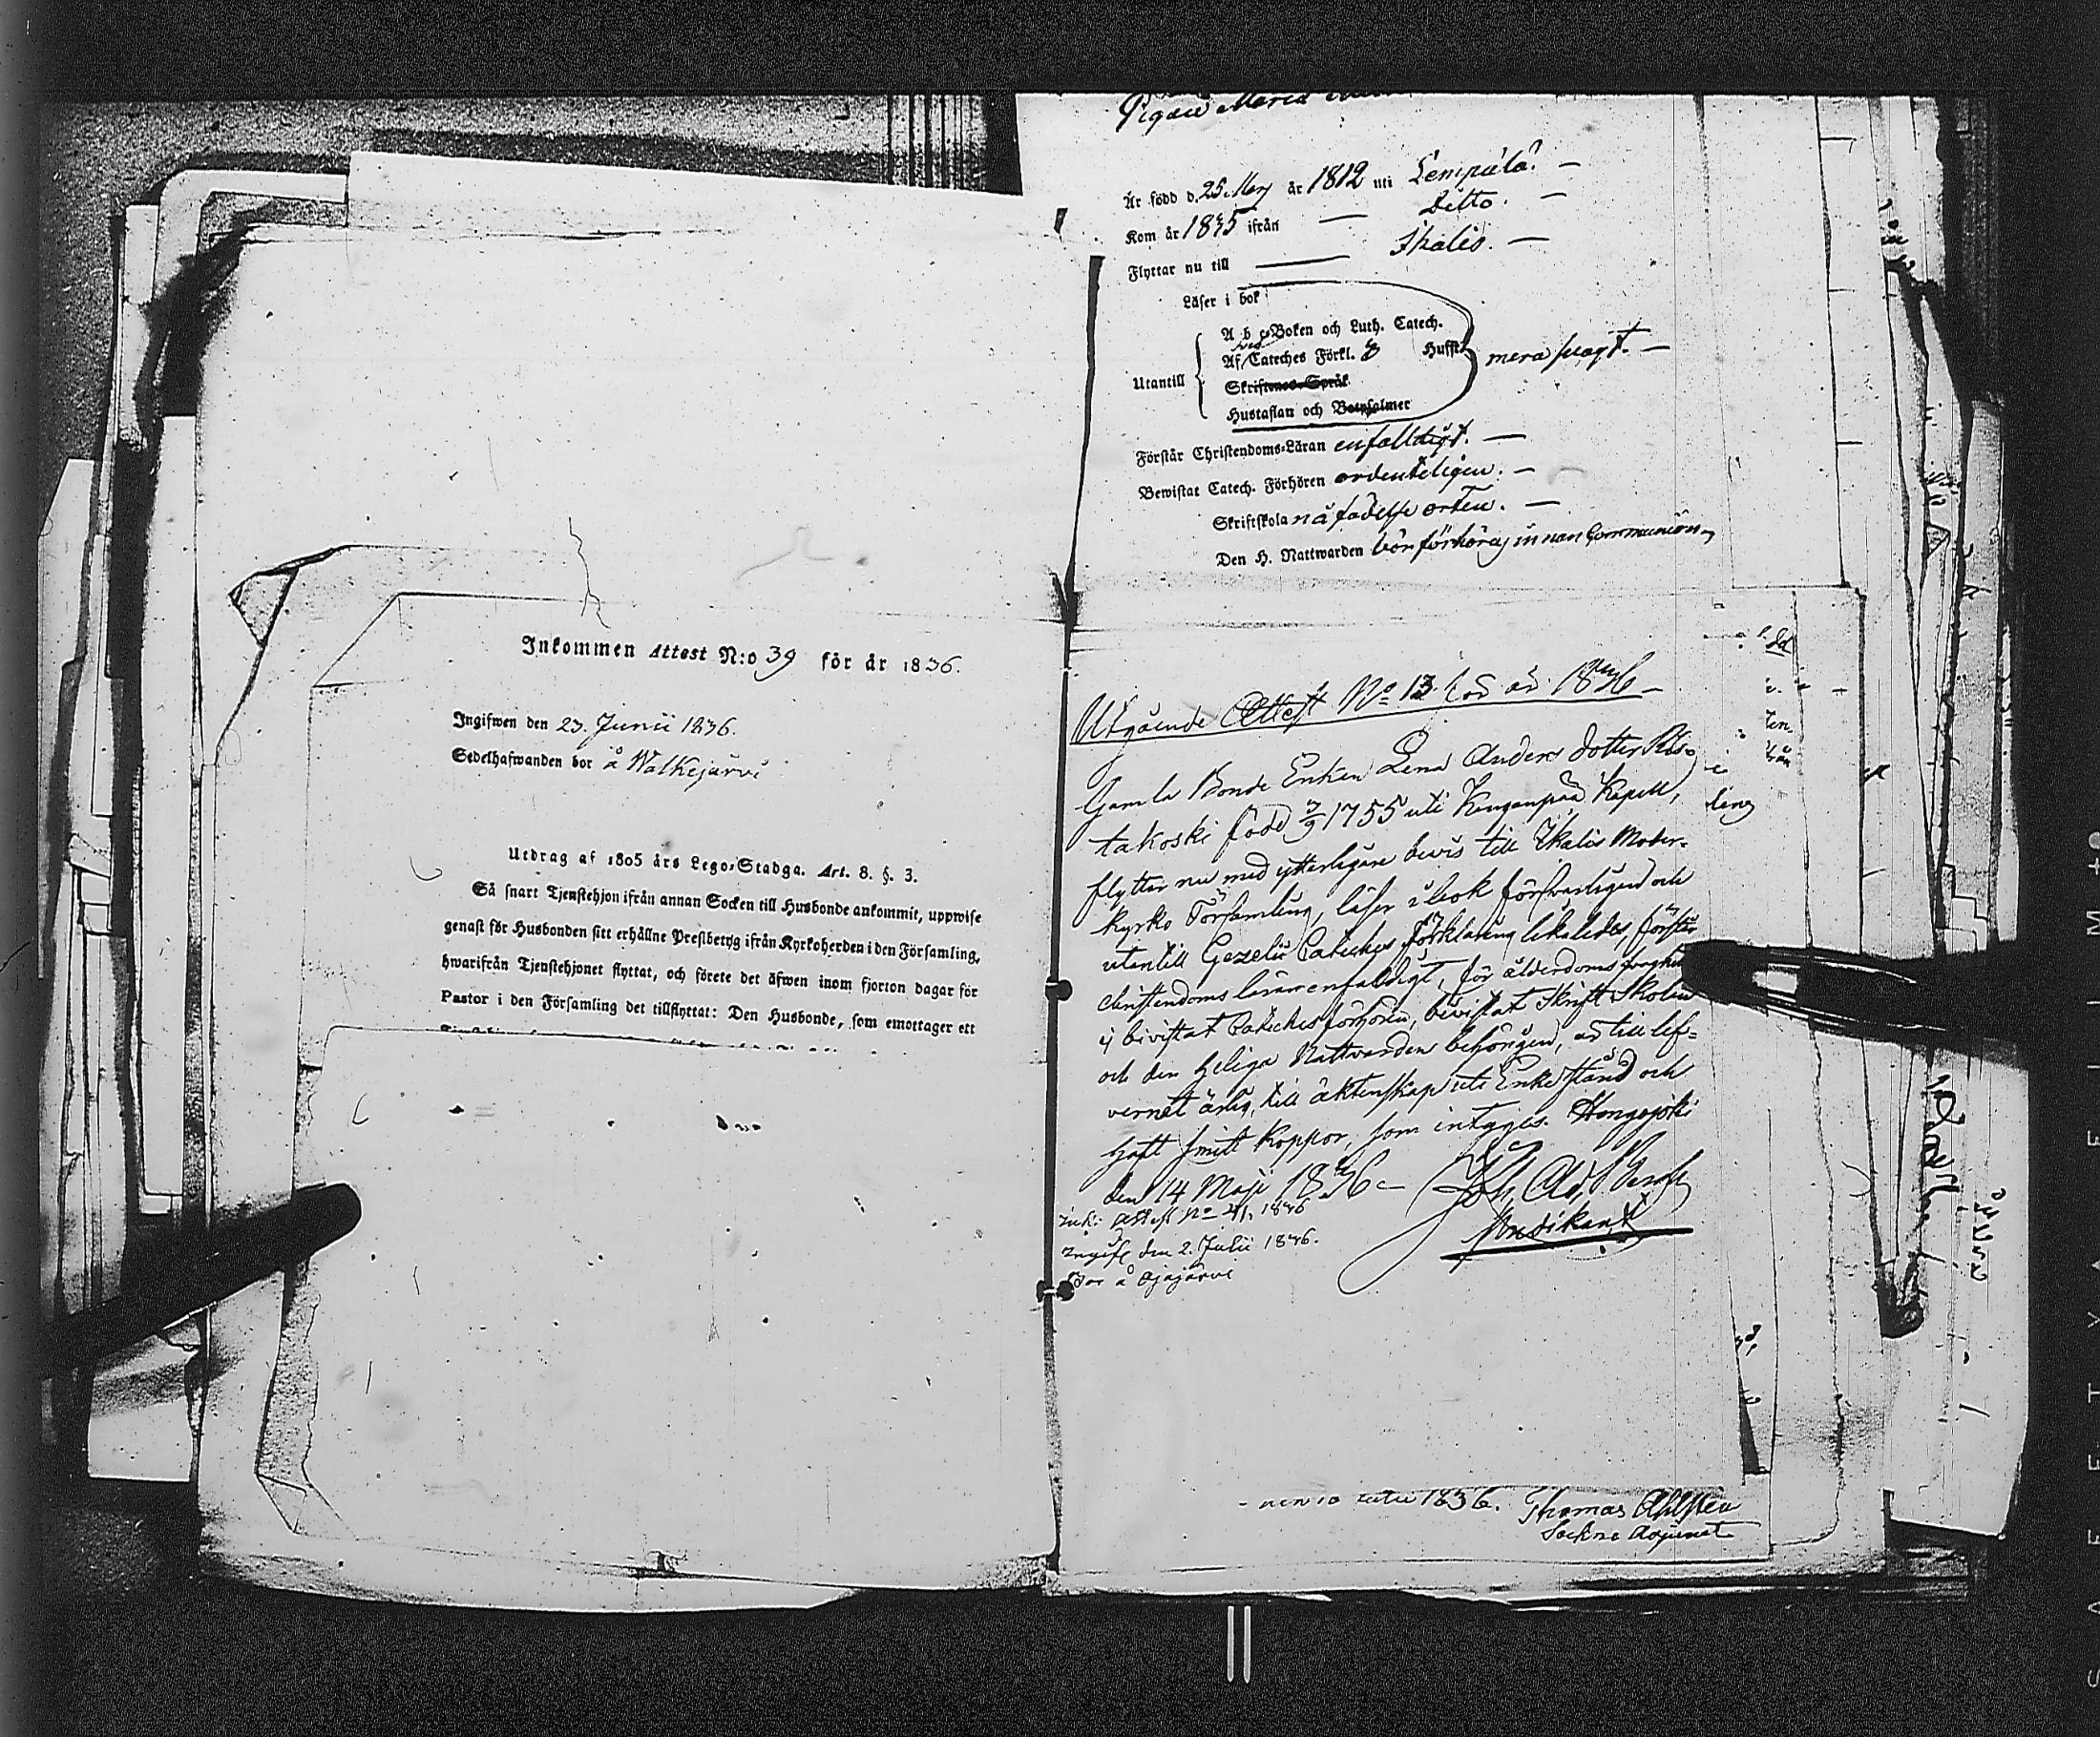 Inkommen Attest N:o 39 för år 1836.
Ingifwen den 23. Junii 1836.
Sedelhafwanden bor å Walkejärvi
Utdrag af 1805 års Lego-Stadga. Art. 8. §. 3.
Så snart Tjenstehjon ifrån annan Socken till Husbonde ankommit, uppwise
genast för Husbonden sitt erhållne Prestbetyg ifrån Kyrkoherden i den Församling,
hwarifrån Tjenstehjonet flyttat, och förete det äfwen inom fjorton dagar för
Pastor i den Församling det tillflyttat: Den Husbonde, som emottager ett
Pigan Maria
Är född d. 25 Marz år 1812 uti Lempälä. —
Kom år 1835 ifrån — Ditto. —
Flyttar nu till — Ikalis. —
Läser i bok
A b c-Boken och Luth. Catech.
Af Cateches Förkl. Hufft.
Utantill
Skriftenes-Språk
Hustaflan och Botpsalmer
mera svagt. —
Förstår Christendoms-Läran enfalldigt. —
Bewistat Catech. Förhören ordenteligen. —
Skriftskola på födelse orten. —
Den H. Nattwarden bör förhöras innan Communion
Utgående Attest No 13 för år 1836
Gamla Bonde Enkan Lena Anders dotter Ris-
takoski född 3/9 1755 uti Kangonpää Kapell,
flyttar nu med ytterligare bevis till Ikalis Moder-
kyrko Församling, läser i bok försvarligen och
utantill Gezelii Cateches förklaring likaledes, förstår
christendoms läran enfaldigt, för ålderdoms svaghet
ej bevistat Cateches förhören, bevistat Skrift Skolan
och den heliga Nattvarden behörigen, är till lef-
vernet ärlig, till äktenskap uti Enke stånd och
haft smitt koppor, som intygas. Hongojoki
den 14 Maji 1836 Joh. Ad.
Predikant
Ink: Attest No 41, 1836
Ingifv den 2. Julii 1836.
Bor å Ojajärvi
1836. Thomas Ahlsten
Sockne Adjunct